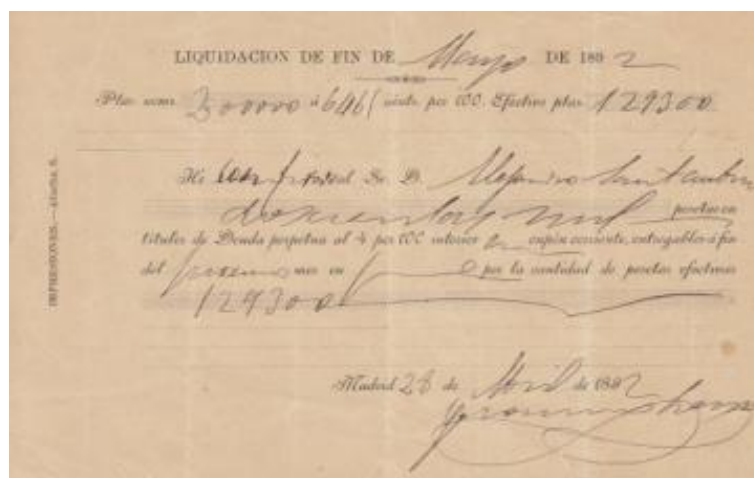 LIQUIDACION DE FIN DE Mayo DE 1892
Ptas. nomr. 200000 á 64'65 cénts. por 100. Efectivo ptas. 129300
He comprado al Sr. D. Alejandro
doscientas mil pesetas en
títulos de Deuda perpetua al 4 por 100 interior cupón corriente, entregables á fin
del próximo mes en por la cantidad de pesetas efectivas
129300
Madrid 28 de Abril de 1892
IMPRESIONES.—Atocha, 8.